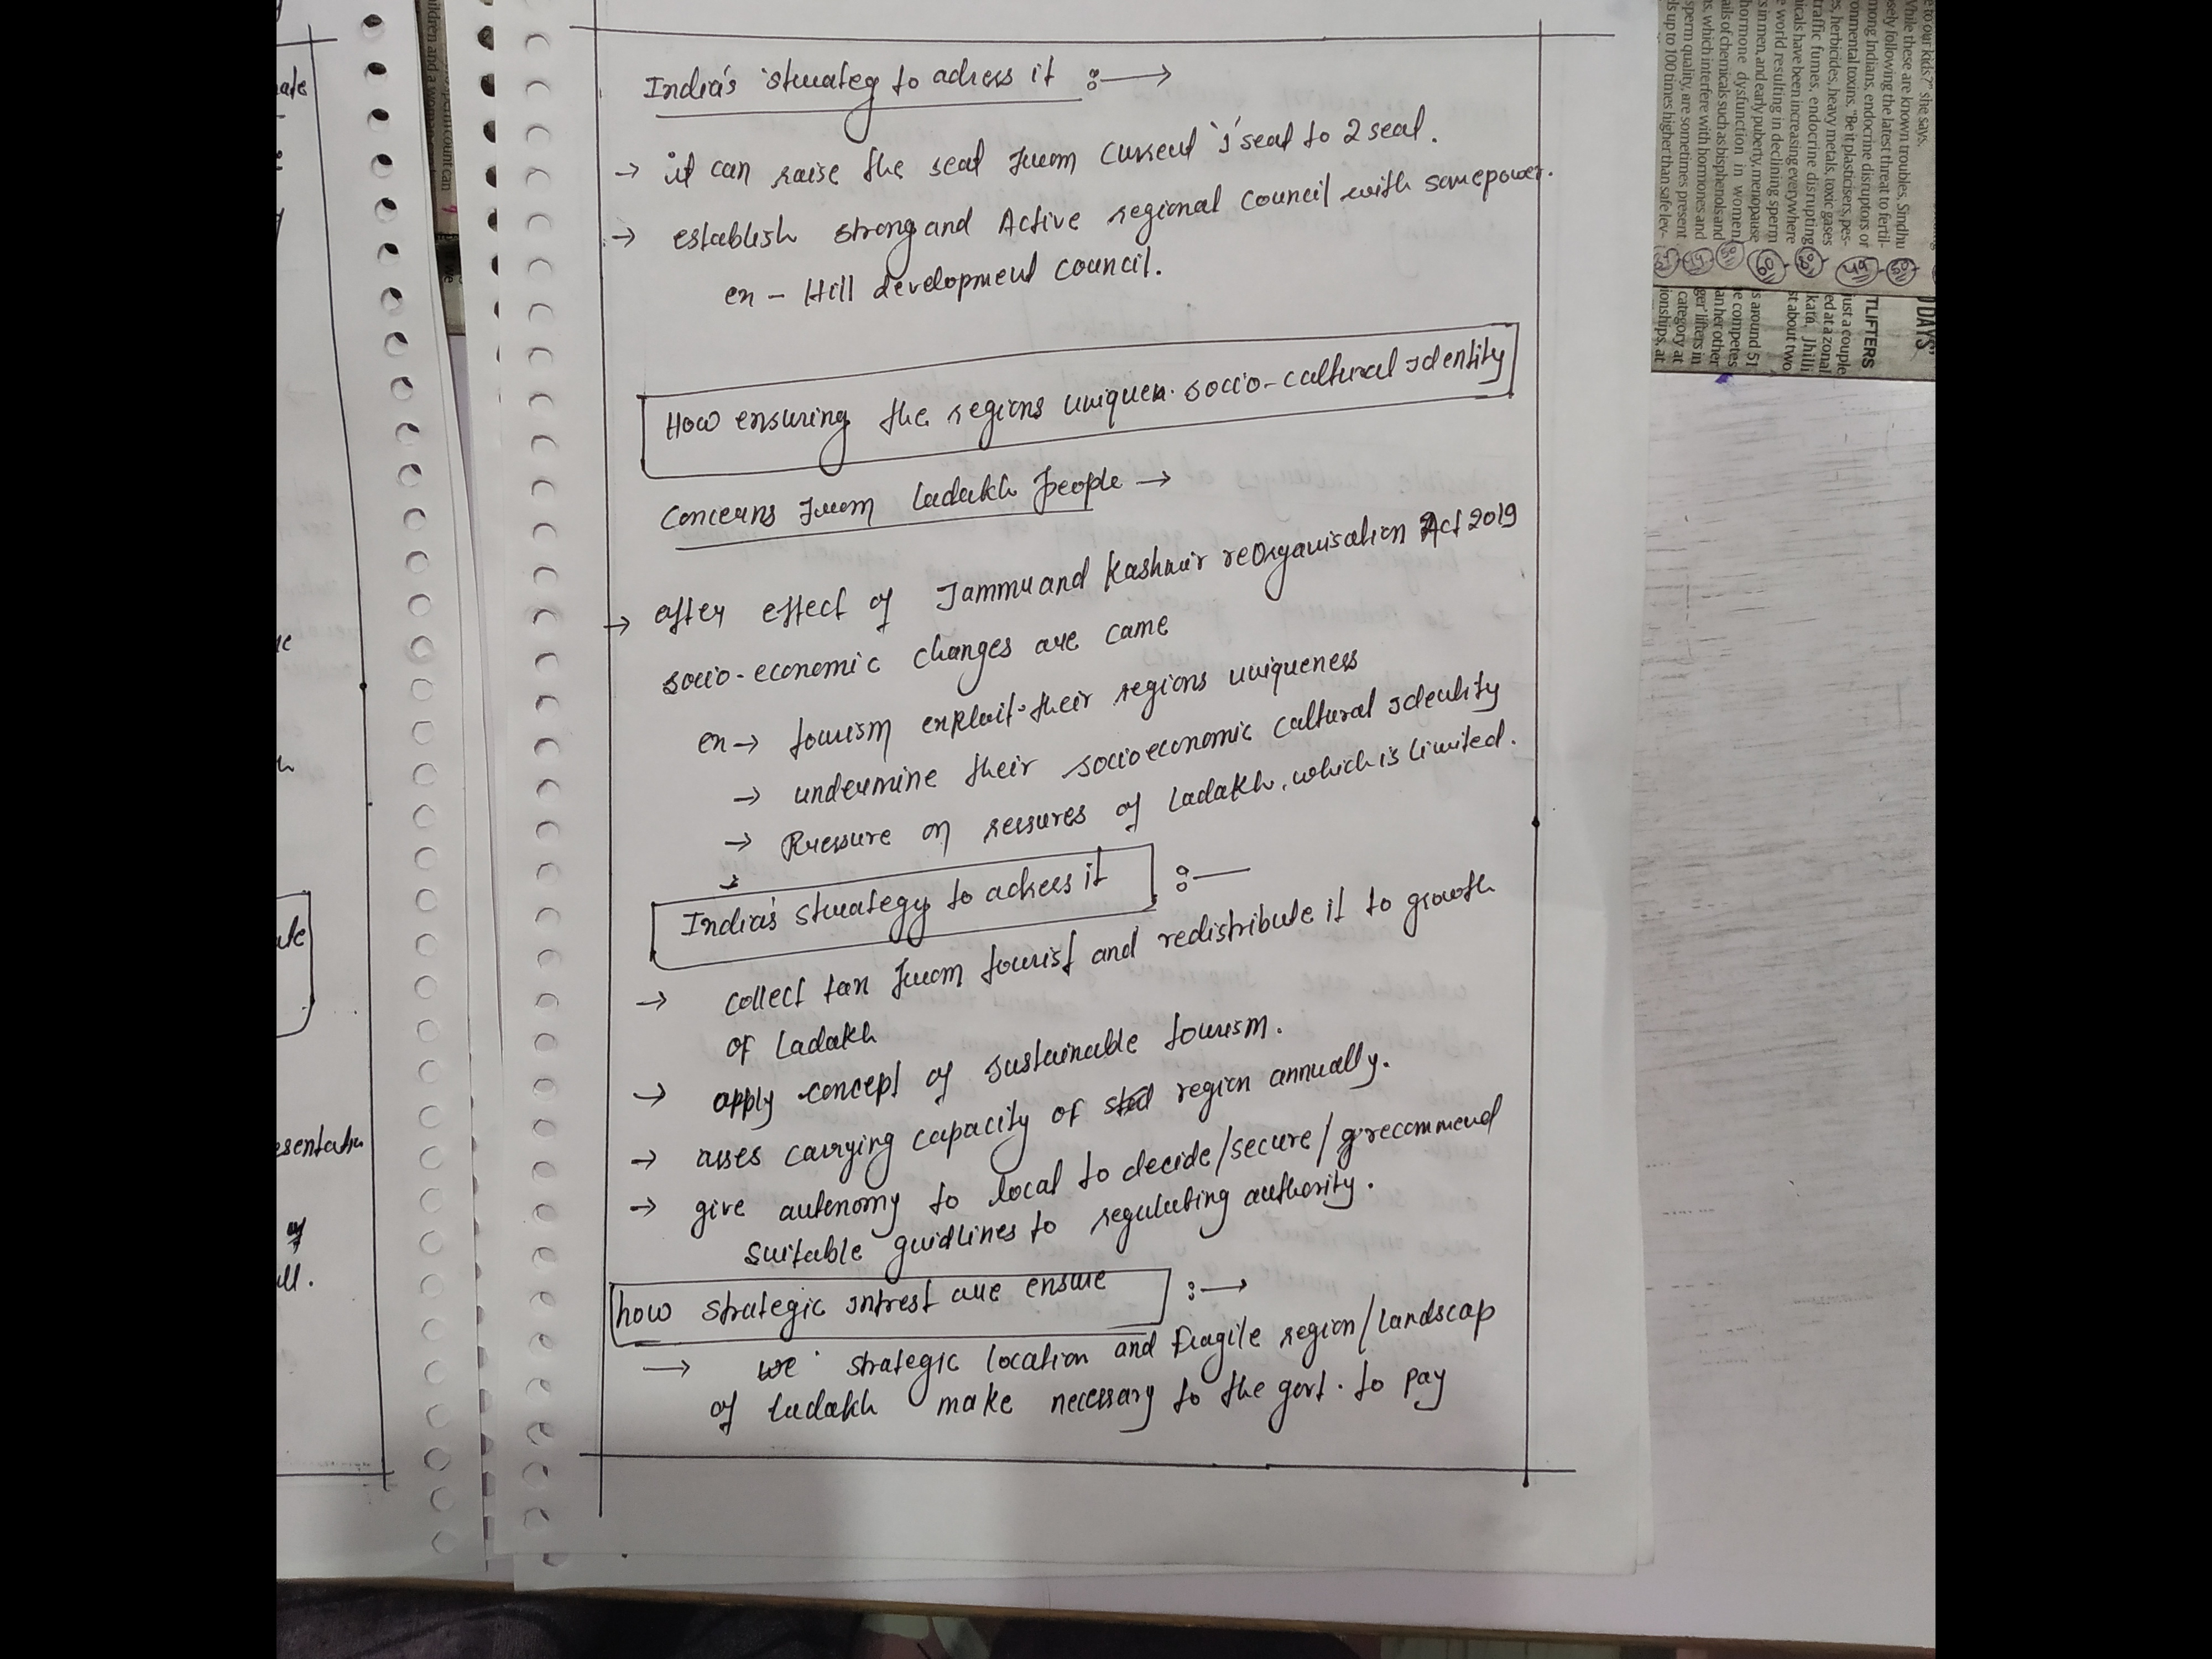 India's strateg to adress it :→
→ it can raise the seat from current '1' seat to 2 seat.
→ establish strong and Active regional council with some power.
ex - Hill development council.
How ensuring the regions unique socio-cultural identity
Concerns from Ladakh people →
→ after effect of Jammu and Kashmir reorganisation Act 2019
socio-economic changes are came
ex → tourism exploit their regions uniqueness
→ undermine their socioeconomic cultural identity
→ Pressure on resures of Ladakh, which is limited.
India's strategy to adress it :—
→ collect tax from tourist and redistribute it to growth
of Ladakh
→ apply concept of sustainable tourism.
→ asses carrying capacity of region annually.
→ give autonomy to local to decide/secure/recommend
suitable guidlines to regulating authority.
how strategic intrest are ensure :→
→ we strategic location and fragile region/landscap
of Ladakh make necessary to the govt. to pay
esentatin
all.
e to our kids?" she says.
While these are known troubles, Sindhu
sely following the latest threat to fertil-
mong Indians, endocrine disruptors, or
onmental toxins. "Be it plasticisers, pes-
s, herbicides, heavy metals, toxic gases
traffic fumes, endocrine disrupting
icals have been increasing everywhere
e world resulting in declining sperm
s in men, and early puberty, menopause
hormone dysfunction in women
ails of chemicals such as bisphenols and
s, which interfere with hormones and
sperm quality, are sometimes present
ls up to 100 times higher than safe lev-
DAYS'
TLIFTERS
ust a couple
ed at a zonal
kata, Jhilli
st about two
s around 51
e competes
an her other
ger lifters in
category at
ionships, at